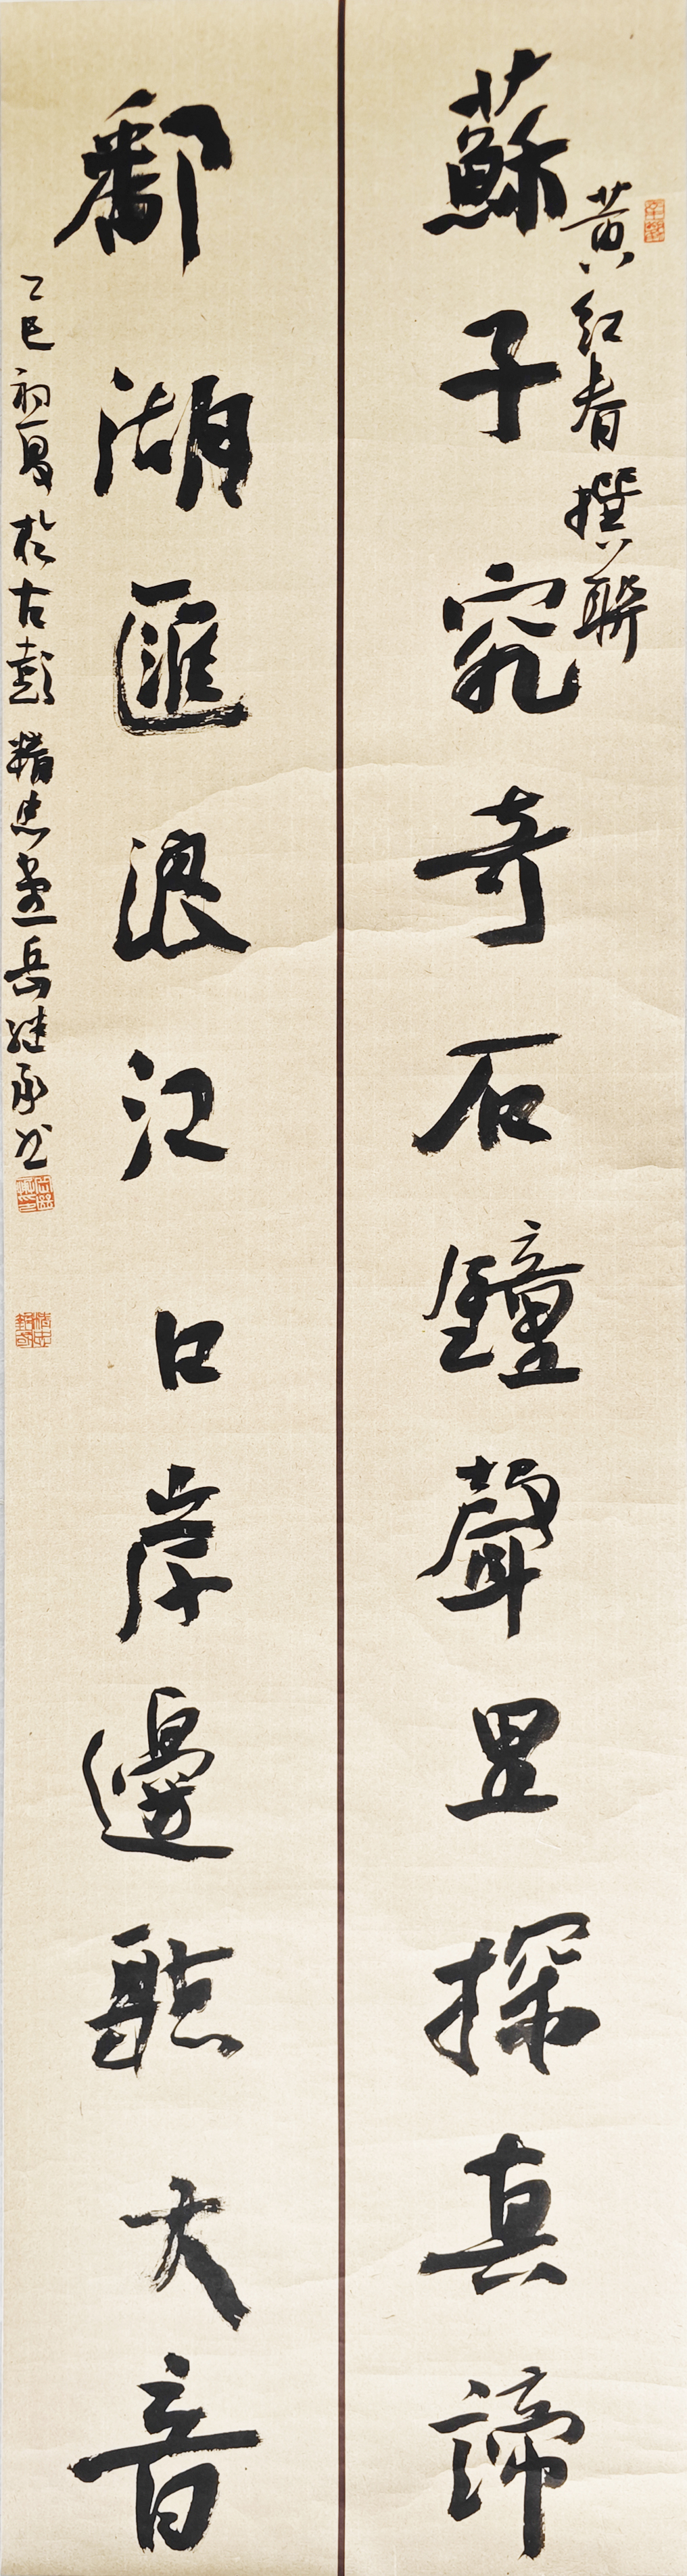 黄红春撰聯
蘇子究奇石鐘聲里探真諦
鄱湖匯浪江口岸邊聽大音
乙巳初夏於古彭精忠堂岳继承书